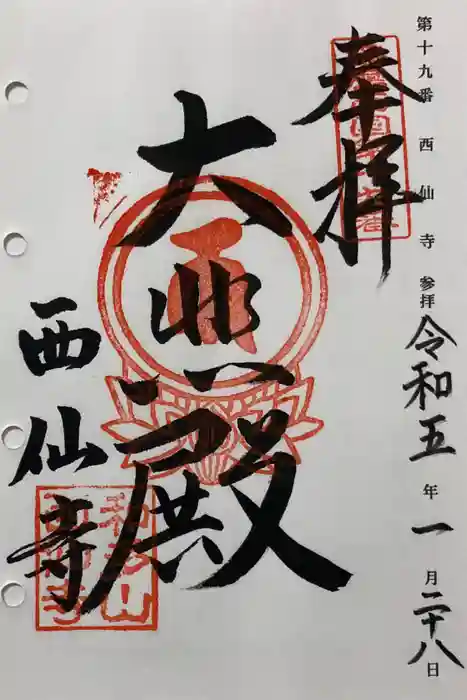 第十九番 西仙寺 参拝
令和五年一月二十八日
奉拝
大悲殿
西仙寺